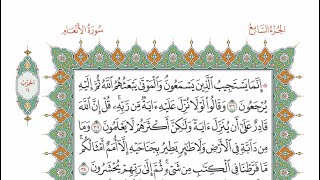 الجزء السابع
سورة الأنعام
إِنَّمَا يَسْتَجِيبُ الَّذِينَ يَسْمَعُونَ وَالْمَوْتَى يَبْعَثُهُمُ اللَّهُ ثُمَّ إِلَيْهِ
يُرْجَعُونَ ٣٦ وَقَالُوا لَوْلَا نُزِّلَ عَلَيْهِ ءَايَةٌ مِّن رَّبِّهِ قُلْ إِنَّ اللَّهَ
قَادِرٌ عَلَى أَن يُنَزِّلَ ءَايَةً وَلَكِنَّ أَكْثَرَهُمْ لَا يَعْلَمُونَ ٣٧ وَمَا
مِن دَابَّةٍ فِي الْأَرْضِ وَلَا طَائِرٍ يَطِيرُ بِجَنَاحَيْهِ إِلَّا أُمَمٌ أَمْثَالُكُم
مَّا فَرَّطْنَا فِي الْكِتَابِ مِن شَيْءٍ ثُمَّ إِلَى رَبِّهِمْ يُحْشَرُونَ